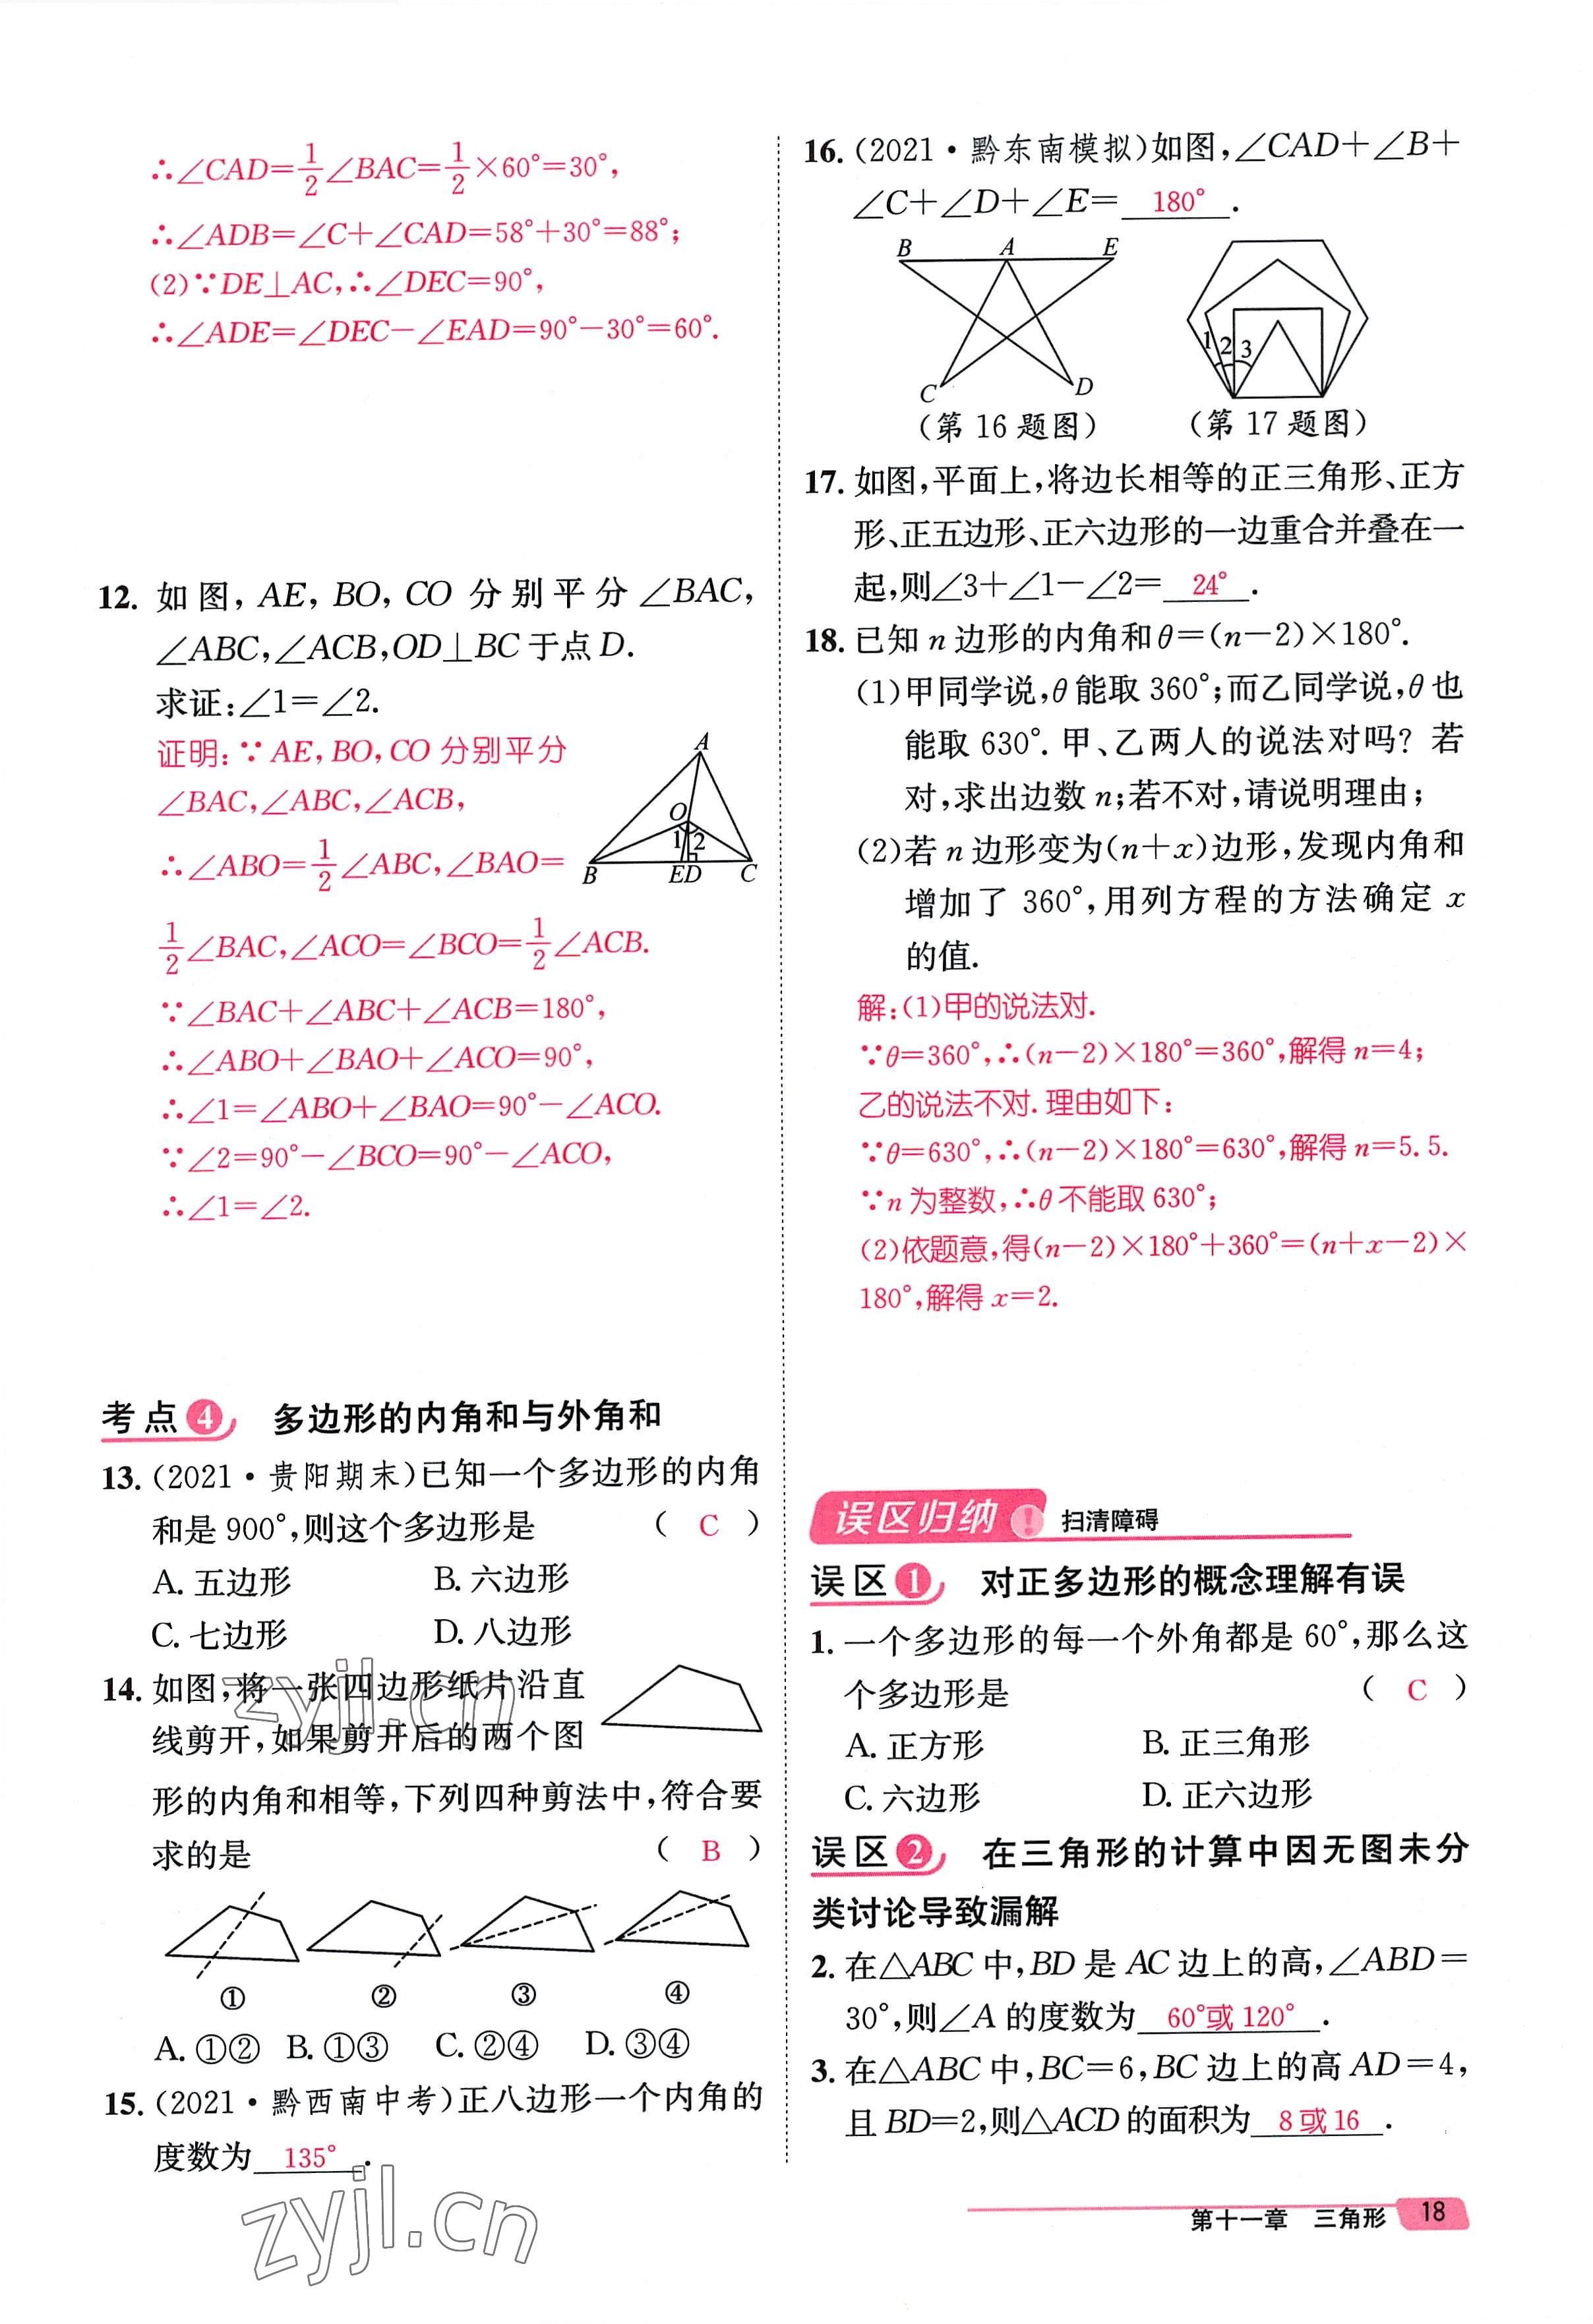 ∴∠CAD=1/2∠BAC=1/2×60°=30°,
∴∠ADB=∠C+∠CAD=58°+30°=88°;
(2)∵DE⊥AC,∴∠DEC=90°,
∴∠ADE=∠DEC-∠EAD=90°-30°=60°.
12. 如图,AE,BO,CO 分别平分∠BAC,
∠ABC,∠ACB,OD⊥BC于点D.
求证:∠1=∠2.
证明:∵AE,BO,CO分别平分
∠BAC,∠ABC,∠ACB,
∴∠ABO=1/2∠ABC,∠BAO=
1/2∠BAC,∠ACO=∠BCO=1/2∠ACB.
∵∠BAC+∠ABC+∠ACB=180°,
∴∠ABO+∠BAO+∠ACO=90°,
∴∠1=∠ABO+∠BAO=90°-∠ACO.
∵∠2=90°-∠BCO=90°-∠ACO,
∴∠1=∠2.
A
O
1 2
B ED C
考点4 多边形的内角和与外角和
13. (2021·贵阳期末)已知一个多边形的内角
和是900°,则这个多边形是 ( C )
A. 五边形 B. 六边形
C. 七边形 D. 八边形
14. 如图,将一张四边形纸片沿直
线剪开,如果剪开后的两个图
形的内角和相等,下列四种剪法中,符合要
求的是 ( B )
① ② ③ ④
A. ①② B. ①③ C. ②④ D. ③④
15. (2021·黔西南中考)正八边形一个内角的
度数为 135° .
16. (2021·黔东南模拟)如图,∠CAD+∠B+
∠C+∠D+∠E= 180° .
B A E
C D
1 2 3
(第16题图) (第17题图)
17. 如图,平面上,将边长相等的正三角形、正方
形、正五边形、正六边形的一边重合并叠在一
起,则∠3+∠1-∠2= 24° .
18. 已知n边形的内角和θ=(n-2)×180°.
(1)甲同学说,θ能取360°;而乙同学说,θ也
能取630°. 甲、乙两人的说法对吗? 若
对,求出边数n;若不对,请说明理由;
(2)若n边形变为(n+x)边形,发现内角和
增加了360°,用列方程的方法确定x
的值.
解:(1)甲的说法对.
∵θ=360°,∴(n-2)×180°=360°,解得n=4;
乙的说法不对.理由如下:
∵θ=630°,∴(n-2)×180°=630°,解得n=5.5.
∵n为整数,∴θ不能取630°;
(2)依题意,得(n-2)×180°+360°=(n+x-2)×
180°,解得x=2.
误区归纳! 扫清障碍
误区1 对正多边形的概念理解有误
1. 一个多边形的每一个外角都是60°,那么这
个多边形是 ( C )
A. 正方形 B. 正三角形
C. 六边形 D. 正六边形
误区2 在三角形的计算中因无图未分
类讨论导致漏解
2. 在△ABC中,BD是AC边上的高,∠ABD=
30°,则∠A的度数为 60°或120° .
3. 在△ABC中,BC=6,BC边上的高AD=4,
且BD=2,则△ACD的面积为 8或16 .
第十一章 三角形 18
zyjl.cn
zyjl.cn